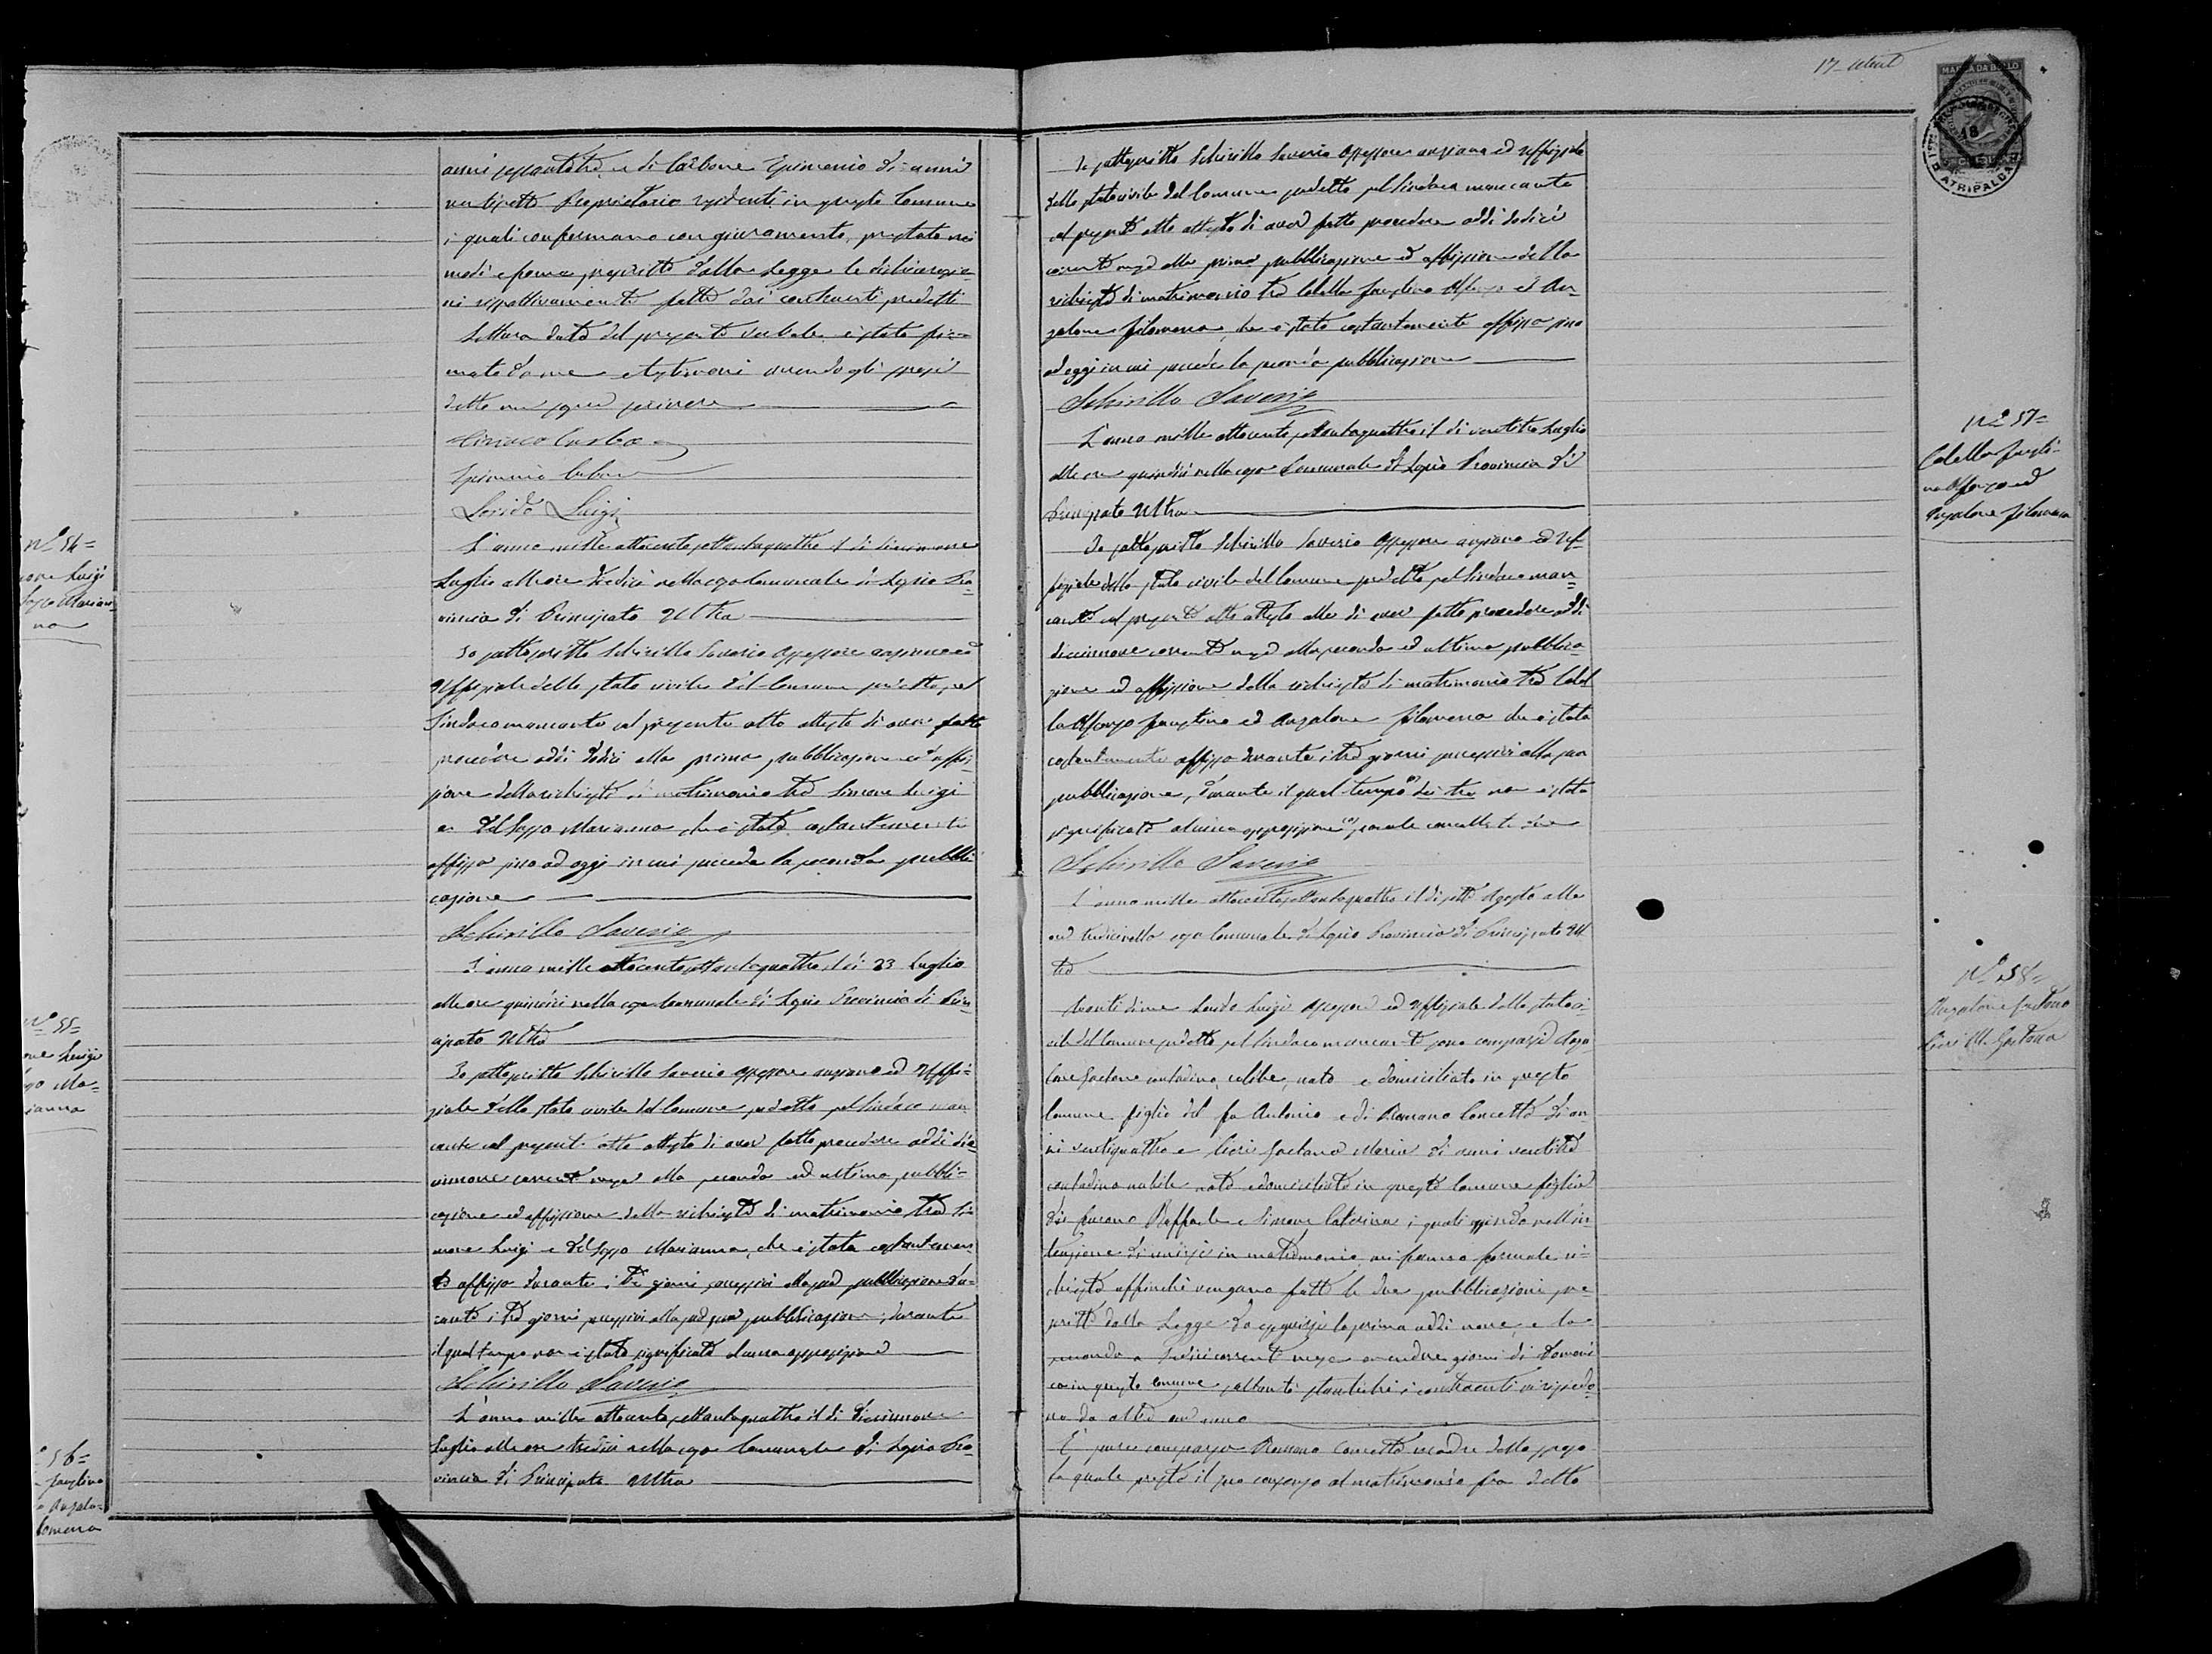 anni sessantatre, e di Carbone Epimenio di anni
ventisette Proprietario residenti in questo Comune
i quali confermano con giuramento, prestato nei
modi e forma prescritta dalla Legge le dichiarazio=
ni rispettivamente fatte dai contraenti predetti
Lettura data del presente verbale è stato fir=
mato da me e testimoni avendo gli sposi
detto non saper scrivere
Epimenio Carbone
Luigi
N.º 54=
L'anno mille ottocento settantaquattro il di diecinnove
Luglio alle ore dodici nella casa Comunale di Sorio Pro=
vincia di Principato Ultra
Io sottoscritto Schirillo Saverio Assessore anziano ed
Uffiziale dello stato civile del Comune predetto, pel
Sindaco mancante al presente atto attesto di aver fatto
procedere addi dodici alla prima pubblicazione ed affis=
sione della richiesta di matrimonio tra Simone Luigi
e Del Sozzo Marianna, che è stata costantemente
affissa sino ad oggi in cui succede la seconda pubbli=
cazione
Schirillo Saverio
N.º 55=
L'anno mille ottocento settantaquattro il di 23 Luglio
alle ore quindici nella casa Comunale di Sorio Provincia di Prin=
cipato Ultra
Io sottoscritto Schirillo Saverio Assessore anziano ed Uffi=
ziale dello stato civile del Comune predetto pel Sindaco man=
cante al presente atto attesto di aver fatto procedere addi die=
cinnove corrente mese alla seconda ed ultima pubbli=
cazione ed affissione della richiesta di matrimonio tra Si=
mone Luigi e Del Sozzo Marianna, che è stata costantemen=
te affissa durante i tre giorni successivi alla sua pubblicazione du=
rante i tre giorni successivi alla sua pubblicazione, durante
il qual tempo non è stata significata alcuna opposizione
Schirillo Saverio
56=
L'anno mille ottocento settantaquattro il di diecinnove
Luglio alle ore tredici nella casa Comunale di Sorio Pro=
vincia di Principato Ultra
17
MARCA DA BOLLO
ATRIPALDA
Io sottoscritto Schirillo Saverio Assessore anziano ed Uffiziale
dello stato civile del Comune predetto pel Sindaco mancante
al presente atto attesto di aver fatto procedere addi dodici
corrente mese alla prima pubblicazione ed affissione della
richiesta di matrimonio tra Colella Faustino Alfonso ed An=
zalone Filomena, che è stata costantemente affissa sino
ad oggi in cui succede la seconda pubblicazione
Schirillo Saverio
N.º 57=
Colella Fausti=
no Alfonso ed
Anzalone Filomena
L'anno mille ottocento settantaquattro il di ventitre Luglio
alle ore quindici nella casa Comunale di Sorio Provincia di
Principato Ultra
Io sottoscritto Schirillo Saverio Assessore anziano ed Uf=
fiziale dello stato civile del Comune predetto pel Sindaco man=
cante al presente atto attesto di aver fatto procedere addi
diecinnove corrente mese alla seconda ed ultima pubblica=
zione ed affissione della richiesta di matrimonio tra Colel
la Alfonso Faustino ed Anzalone Filomena che è stata
costantemente affissa durante i tre giorni successivi alla sua
pubblicazione, durante il qual tempo dei tre non è stata
significata alcuna opposizione, parole cancellate due
Schirillo Saverio
N.º 58=
Anzalone Gaetano
Gaetana
L'anno mille ottocento settantaquattro il di sette Agosto alle
ore tredici nella casa Comunale di Sorio Provincia di Principato Ul
tra
Avanti di me Luigi Assessore ed Uffiziale dello stato ci=
vile del Comune predetto pel Sindaco mancante sono comparsi Anza=
lone Gaetano contadino, celibe, nato e domiciliato in questo
Comune figlio del fu Antonio e di Romano Concetta di an=
ni ventiquattro e Gaetana Maria di anni ventitre
contadina nubile nata e domiciliata in questo Comune figlia
di Raffaele e Simone Caterina i quali essendo nell'in=
tenzione di unirsi in matrimonio mi fanno formale ri=
chiesta affinchè vengano fatte le due pubblicazioni pre=
scritte dalla Legge da eseguirsi la prima addi nove, e la
seconda a sedici corrente mese amendue giorni di Domeni
ca in questo Comune, soltanto stantechè i contraenti vi risiedo=
no da oltre un anno
È pure comparsa Romano Concetta madre dello sposo
la quale presta il suo consenso al matrimonio fra detto